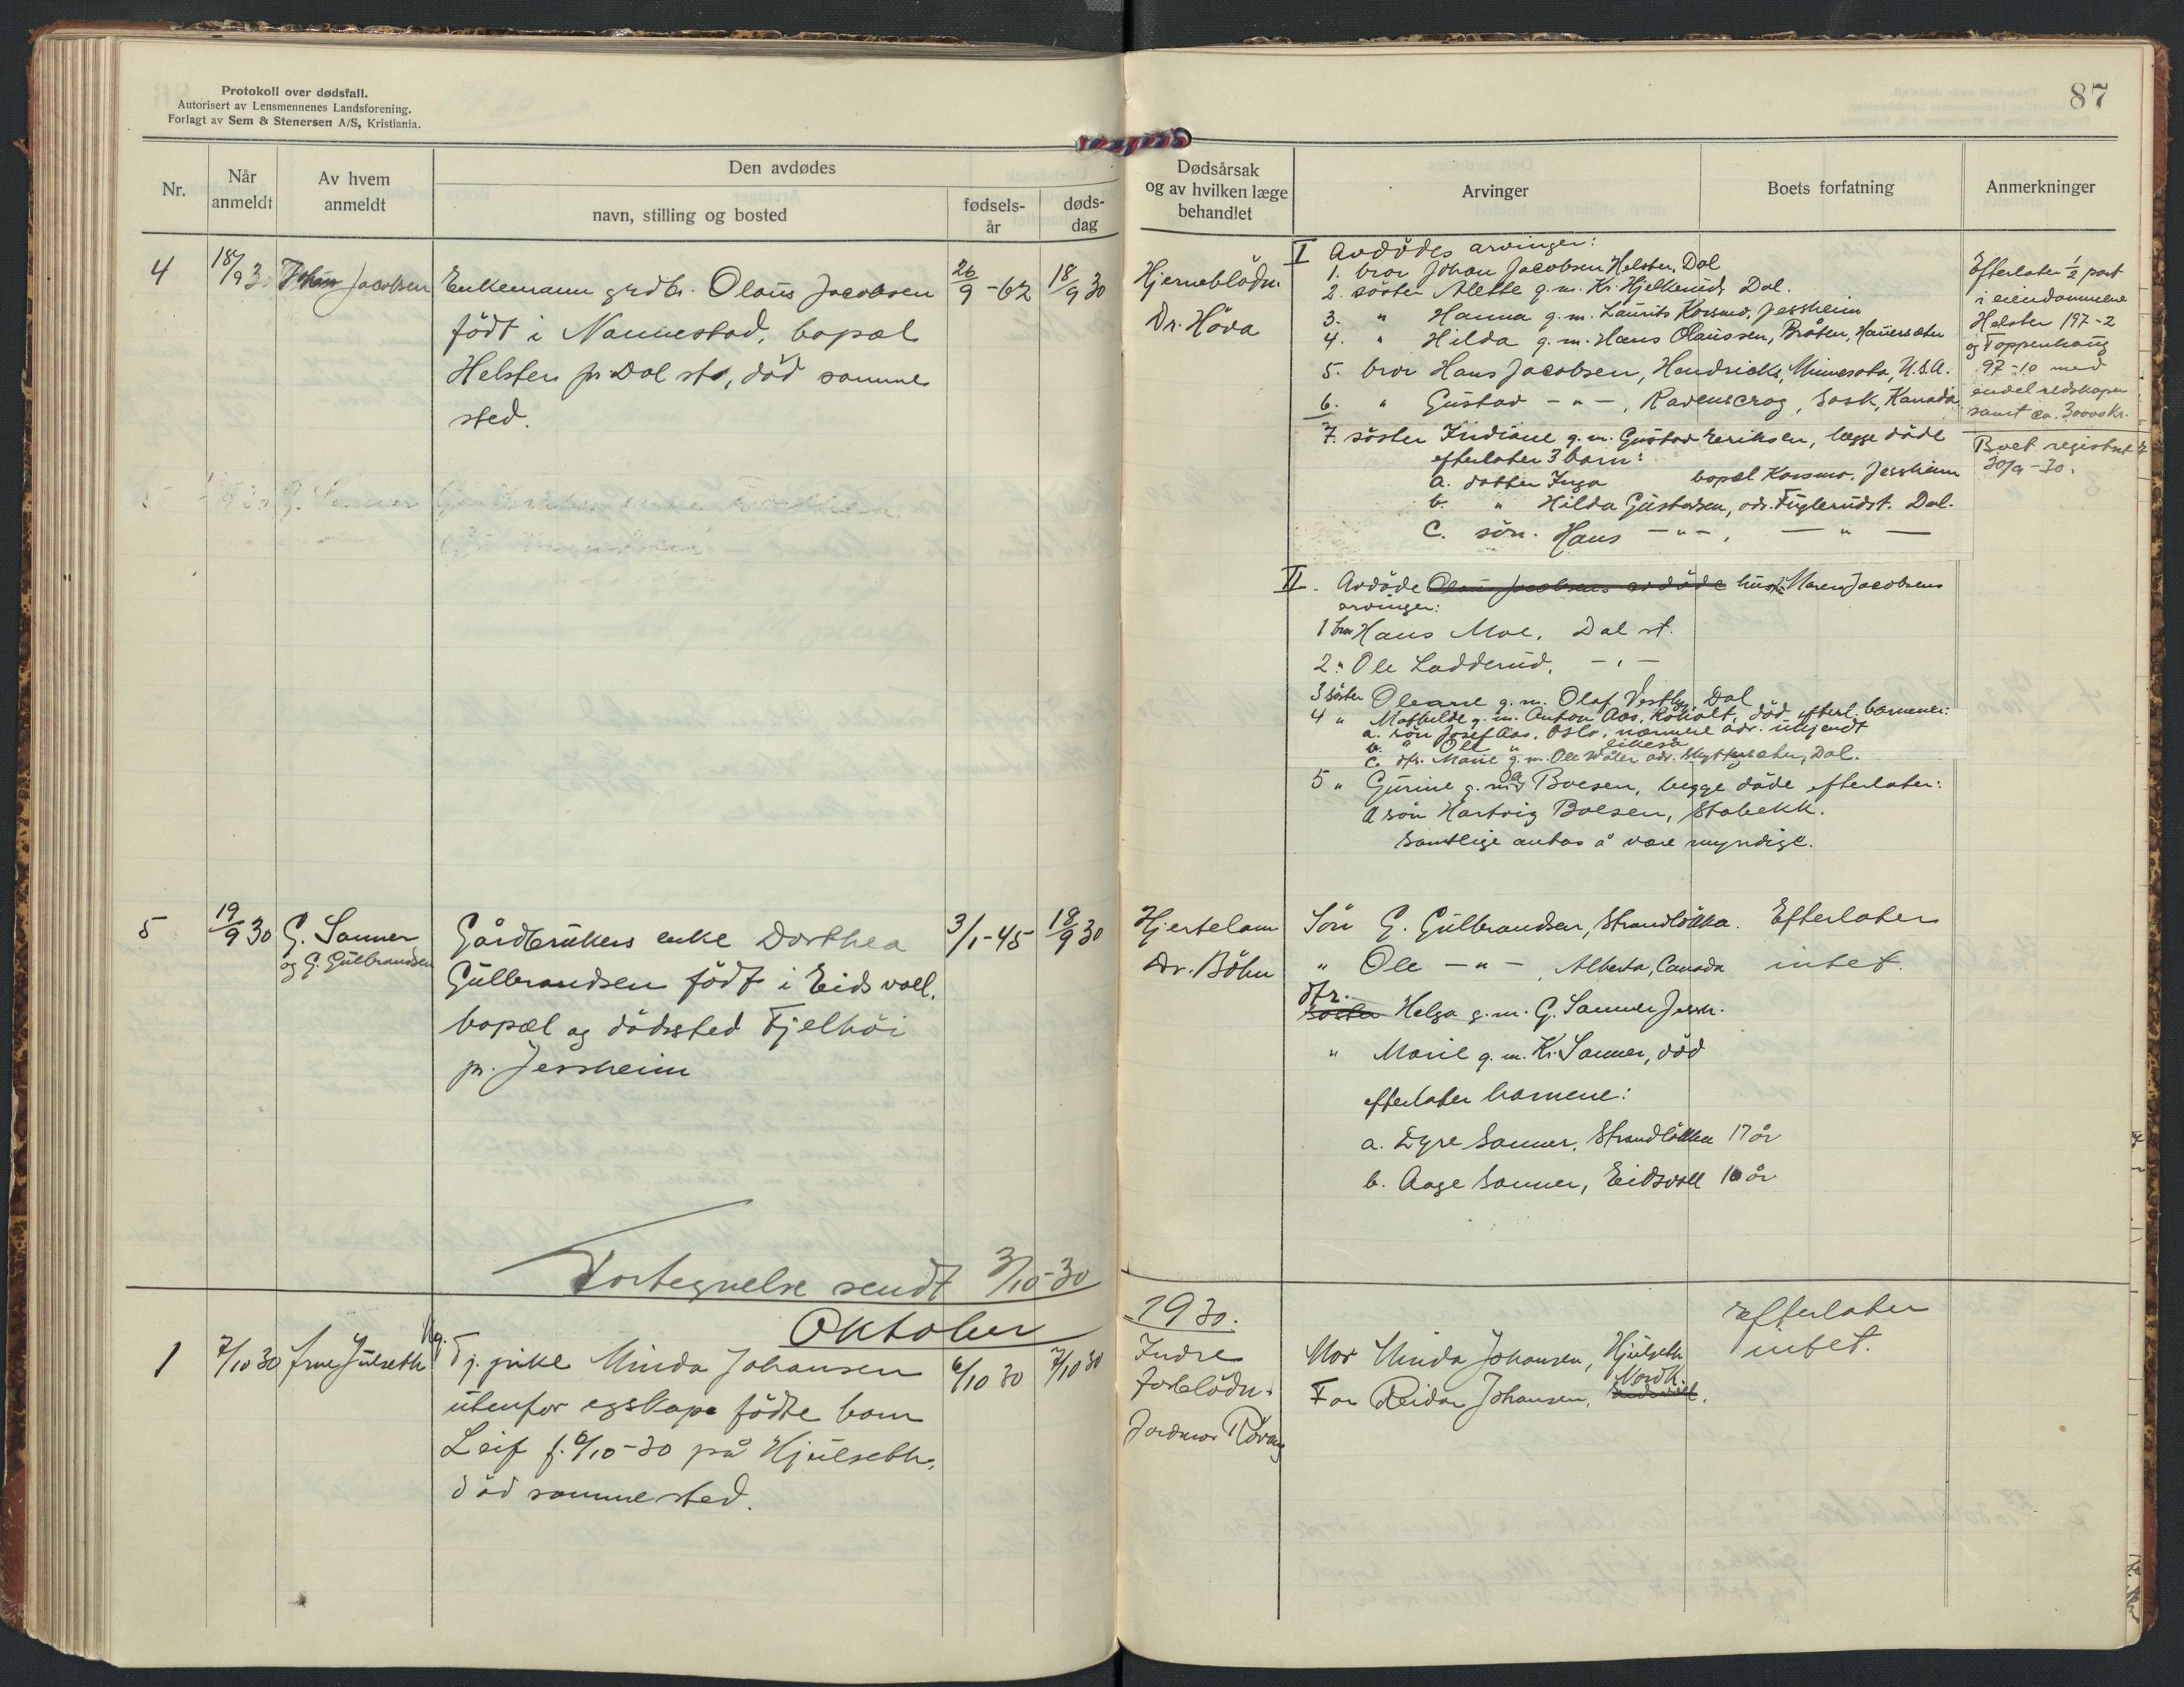 Protokoll over dødsfall.
Autorisert av Lensmennenes Landsforening.
Forlagt av Sem & Stenersen A/S, Kristiania.
Nr.
Når anmeldt
Av hvem anmeldt
Den avdødes
navn, stilling og bosted
fødsels-år
døds-dag
4
18/9 30
Johan Jacobsen
Enkemann grdbr. Olaus Jacobsen
født i Nannestad, bopæl
Helsten pr. Dal st., død samme
sted.
26/9 - 62
18/9 30
5
19/9 30
G. Sanner
og G. Gulbrandsen
Gårdbrukers enke Dorthea
Gulbrandsen født i Eidsvoll.
bopæl og dødssted Fjelhöi
pr. Jessheim
3/1 - 45
18/9 30
Fortegnelse sendt 3/10-30
Oktober
1
7/10 30
Arne Julseth
Ug. Tj. pike Minda Johansen
utenfor egskape födte barn
Leif f. 6/10-30 på Hjulseth,
död samme sted.
6/10 30
7/10 30
87
Dødsårsak
og av hvilken læge
behandlet
Arvinger
Boets forfatning
Anmerkninger
Hjerneblödn.
Dr. Höva
I Avdödes arvinger:
1. bror Johan Jacobsen Helsten, Dal
2. söster Alette g.m. Kr. Hjelkerud, Dal.
3. " Hanna g.m. Laurits Korsmo, Jessheim
4. " Hilda g.m. Hans Olaussen, Bråten, Hauersæter
5. bror Hans Jacobsen, Hendricks, Minnesota, U.S.A.
6. " Gustav - " - , Ravenscrag, Sask, Kanada
7. söster Indiane g.m. Gustav Eriksen, begge döde
efterlater 3 barn:
a. datter Inga bopæl Korsmo, Jessheim
b. " Hilda Gustavsen, adr. Fuglerudst. Dal.
C. sön. Hans - " - , — " —
Efterlater 1/2 part
i eiendommene
Helsten 197-2
og Toppenhaug
97-10 med
endel redskaper
samt ca. 30000 Kr.
Boet registrert
30/9-30.
II. Avdöde Olaus Jacobsens avdöde hustr. Maren Jacobsens
arvinger:
1 bror Hans Moe, Dal st.
2 " Ole Ladderud, - " -
3 söster Oleane g.m. Olaf Vestby, Dal
4 " Mathilde g.m. Anton Aas, Roholt, död efterl. barnene:
a. sön Josef Aas, Oslo, nærmere adr. ukjendt
b. " Ole " likeså
c. dtr. Marie g.m. Ole Wåler adr. Skyttersæter, Dal.
5 " Gurine g. m. Boesen, begge döde efterlater:
a sön Hartvig Boesen, Stabekk.
Samtlige antas å være myndige.
Hjertelam
Dr. Böhn
Sön G. Gulbrandsen, Strandlökka.
" Ole - " - , Alberta, Canada
dtr.
söster Helga g.m. G. Sanner Jessh.
" Marie g.m. Kr. Sanner, död
efterlater barnene:
a. Dyre Sanner, Strandlökka 17 år
b. Aage Sanner, Eidsvoll 16 år
Efterlater
intet.
1930.
Indre
forblödn.
Jordmor Rövang
Mor Minda Johansen, Hjulseth
Far Reidar Johansen, Nordk.
Efterlater
intet.